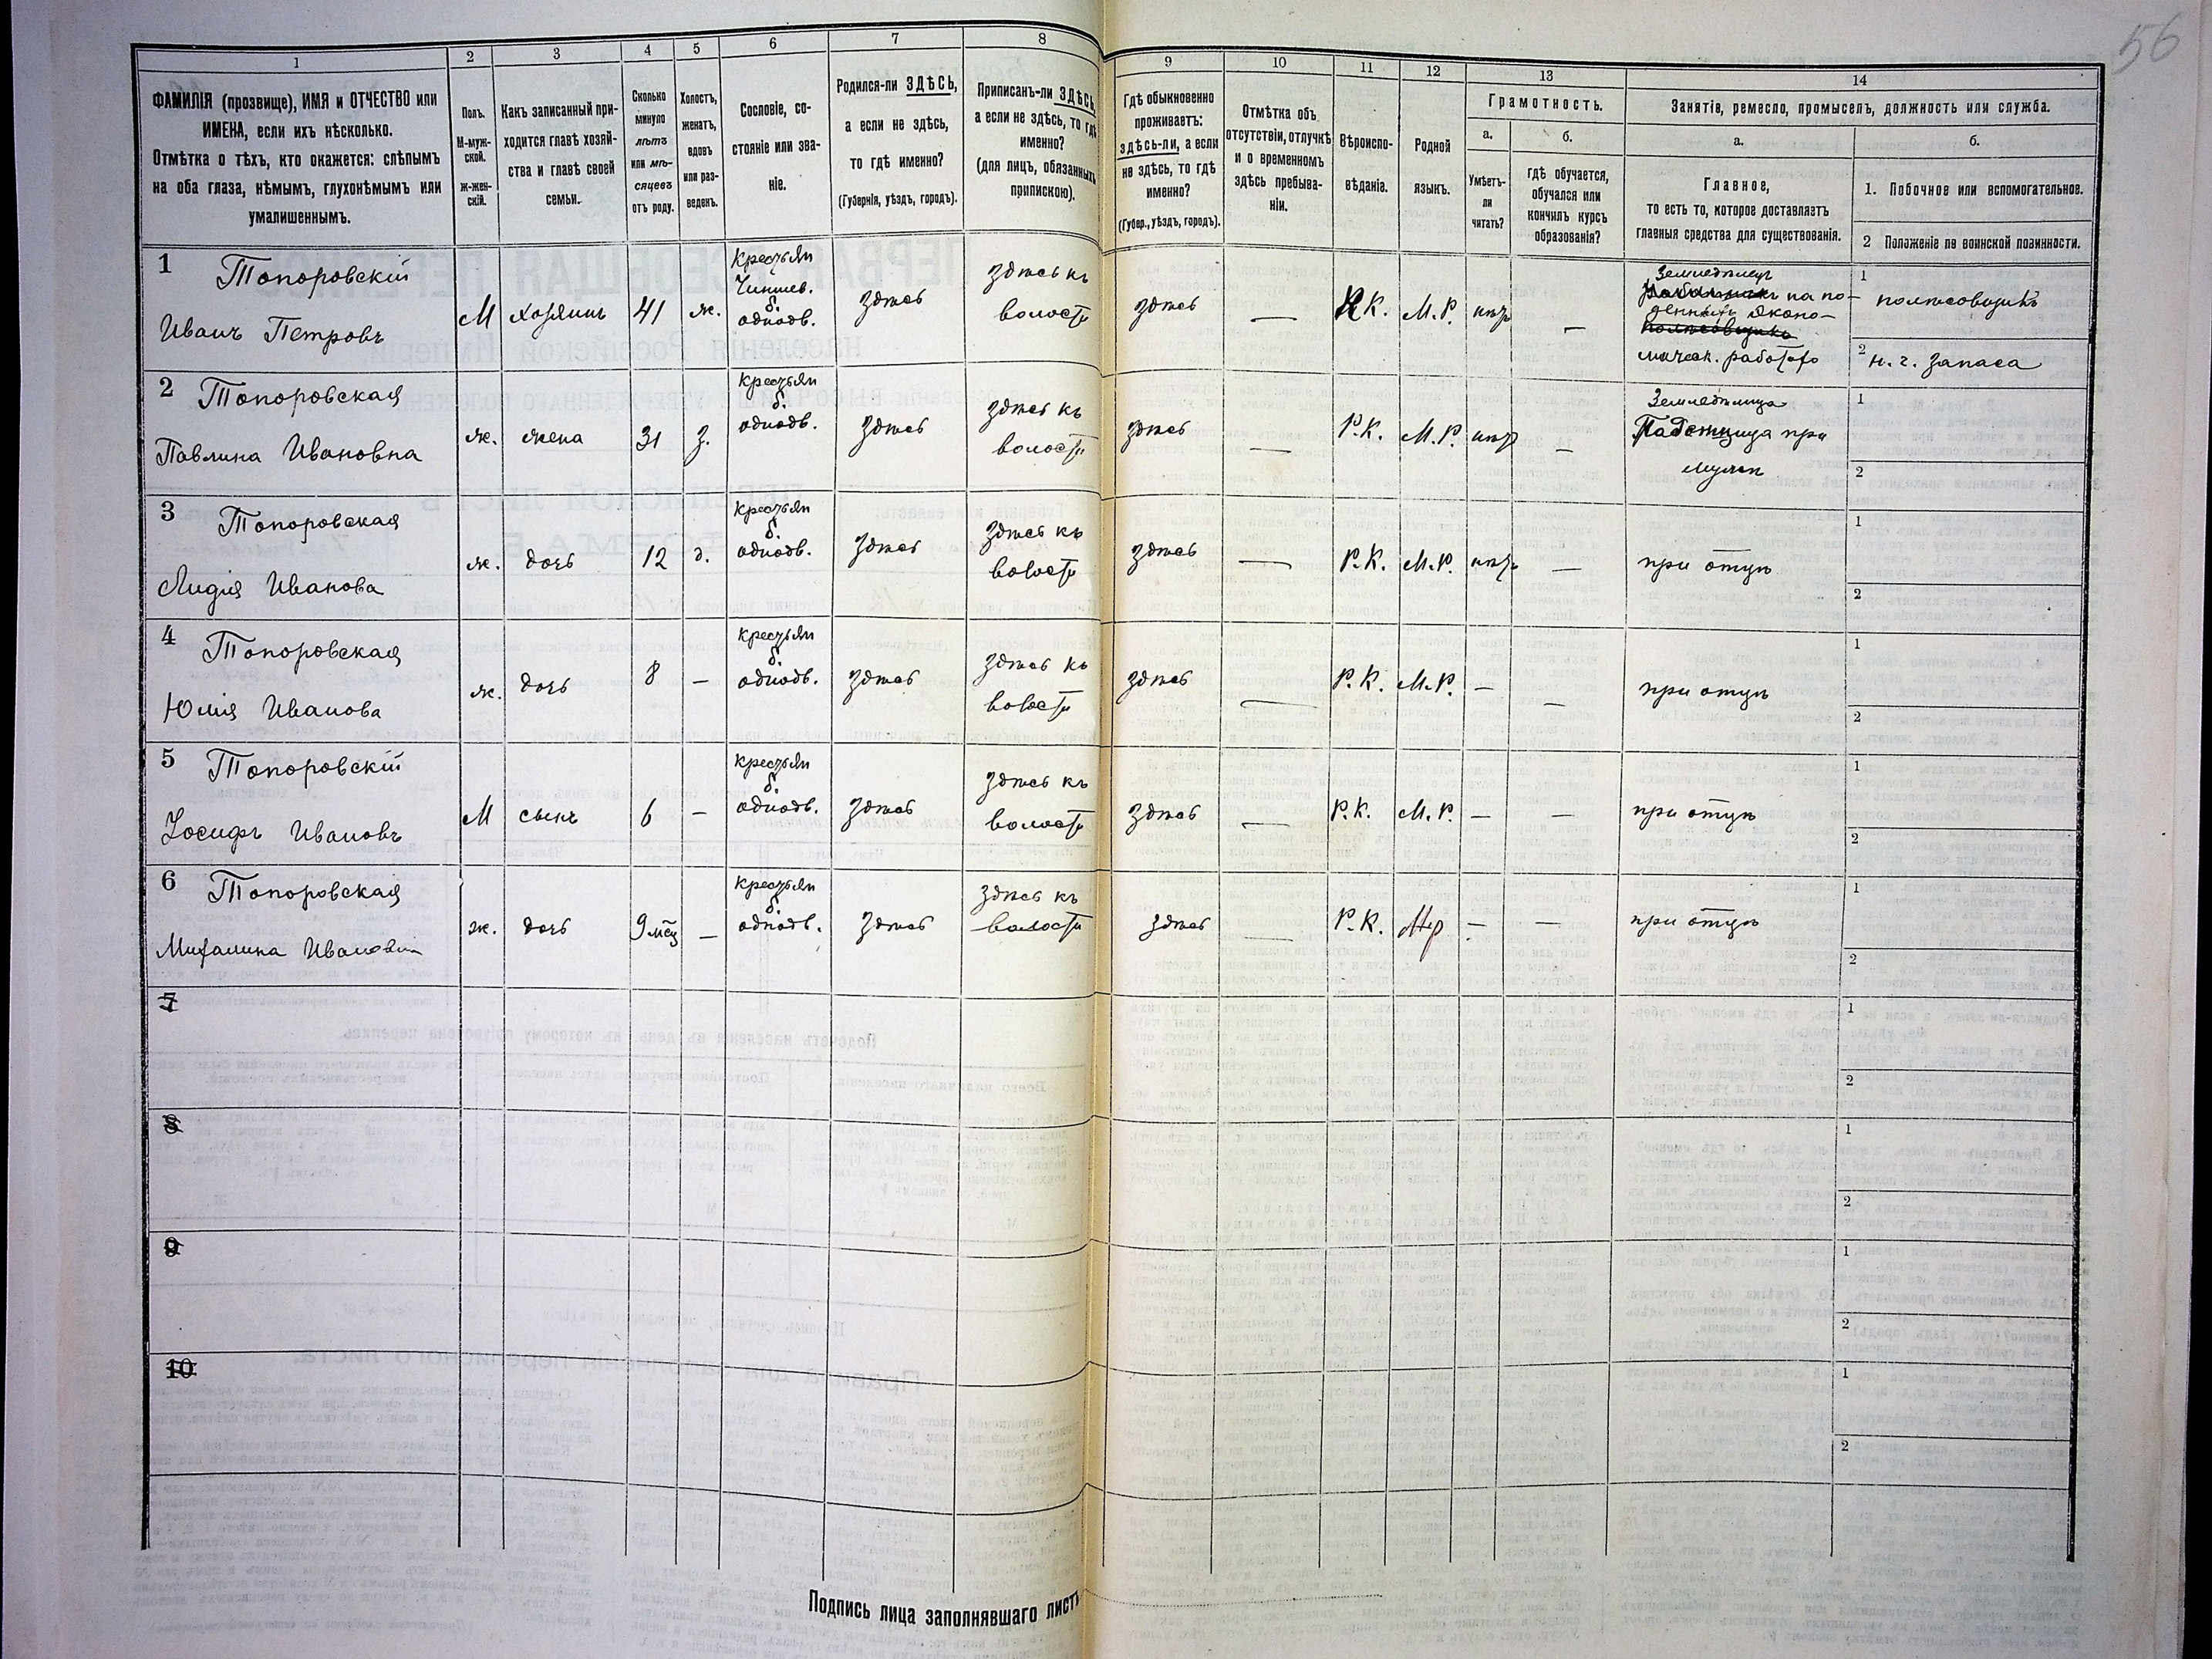 56
1
ФАМИЛІЯ (прозвище), ИМЯ и ОТЧЕСТВО или
ИМЕНА, если ихъ нѣсколько.
Отмѣтка о тѣхъ, кто окажется: слѣпымъ
на оба глаза, нѣмымъ, глухонѣмымъ или
умалишеннымъ.
2
Полъ.
М-муж-
ской.
ж-жен-
скій.
3
Какъ записанный при-
ходится главѣ хозяй-
ства и главѣ своей
семьи.
4
Сколько
минуло
лѣтъ
или мѣ-
сяцевъ
отъ роду.
5
Холостъ,
женатъ,
вдовъ
или раз-
веденъ.
6
Сословіе, со-
стояніе или зва-
ніе.
7
Родился-ли ЗДѢСЬ,
а если не здѣсь,
то гдѣ именно?
(Губернія, уѣздъ, городъ).
8
Приписанъ-ли ЗДѢСЬ,
а если не здѣсь, то гдѣ
именно?
(для лицъ, обязанныхъ
припискою).
9
Гдѣ обыкновенно
проживаетъ:
здѣсь-ли, а если
не здѣсь, то гдѣ
именно?
(Губер., уѣздъ, городъ).
10
Отмѣтка объ
отсутствіи, отлучкѣ
и о временномъ
здѣсь пребыва-
ніи.
11
Вѣроиспо-
вѣданіе.
12
Родной
языкъ.
13
Грамотность.
а.
Умѣетъ-
ли
читать?
б.
гдѣ обучается,
обучался или
кончилъ курсъ
образованія?
14
Занятіе, ремесло, промыселъ, должность или служба.
а.
Главное,
то есть то, которое доставляетъ
главныя средства для существованія.
б.
1. Побочное или вспомогательное.
2 Положеніе по воинской повинности.
1
Топоровскій
Иванъ Петровъ
М
хозяинъ
41
ж.
Крестьян
Чиншев.
б.
однодв.
здѣсь
здѣсь къ
волости
здѣсь
—
Р.К.
М.Р.
нѣт
—
Земледѣлец
на по-
мическ. работах
1
полѣсовщикъ
2
н. ч. запаса
2
Топоровская
Павлина Ивановна
ж.
жена
31
з.
Крестьян
б.
однодв.
здѣсь
здѣсь къ
волости
здѣсь
—
Р.К.
М.Р.
нѣт
—
Земледѣлица
при
мужѣ
1
2
3
Топоровская
Лидія Иванова
ж.
дочь
12
д.
Крестьян
б.
однодв.
здѣсь
здѣсь къ
волости
здѣсь
—
Р.К.
М.Р.
нѣт
—
при отцѣ
1
2
4
Топоровская
Юлія Иванова
ж.
дочь
8
—
Крестьян
б.
однодв.
здѣсь
здѣсь къ
волости
здѣсь
—
Р.К.
М.Р.
—
—
при отцѣ
1
2
5
Топоровскій
Іосифъ Ивановъ
М
сынъ
6
—
Крестьян
б.
однодв.
здѣсь
здѣсь къ
волости
здѣсь
—
Р.К.
М.Р.
—
—
при отцѣ
1
2
6
Топоровская
Михалина
ж.
дочь
9 мѣс
—
Крестьян
б.
однодв.
здѣсь
здѣсь къ
волости
здѣсь
—
Р.К.
Мр
—
—
при отцѣ
1
2
7
1
2
8
1
2
9
1
2
10
1
2
Подпись лица заполнявшаго листъ